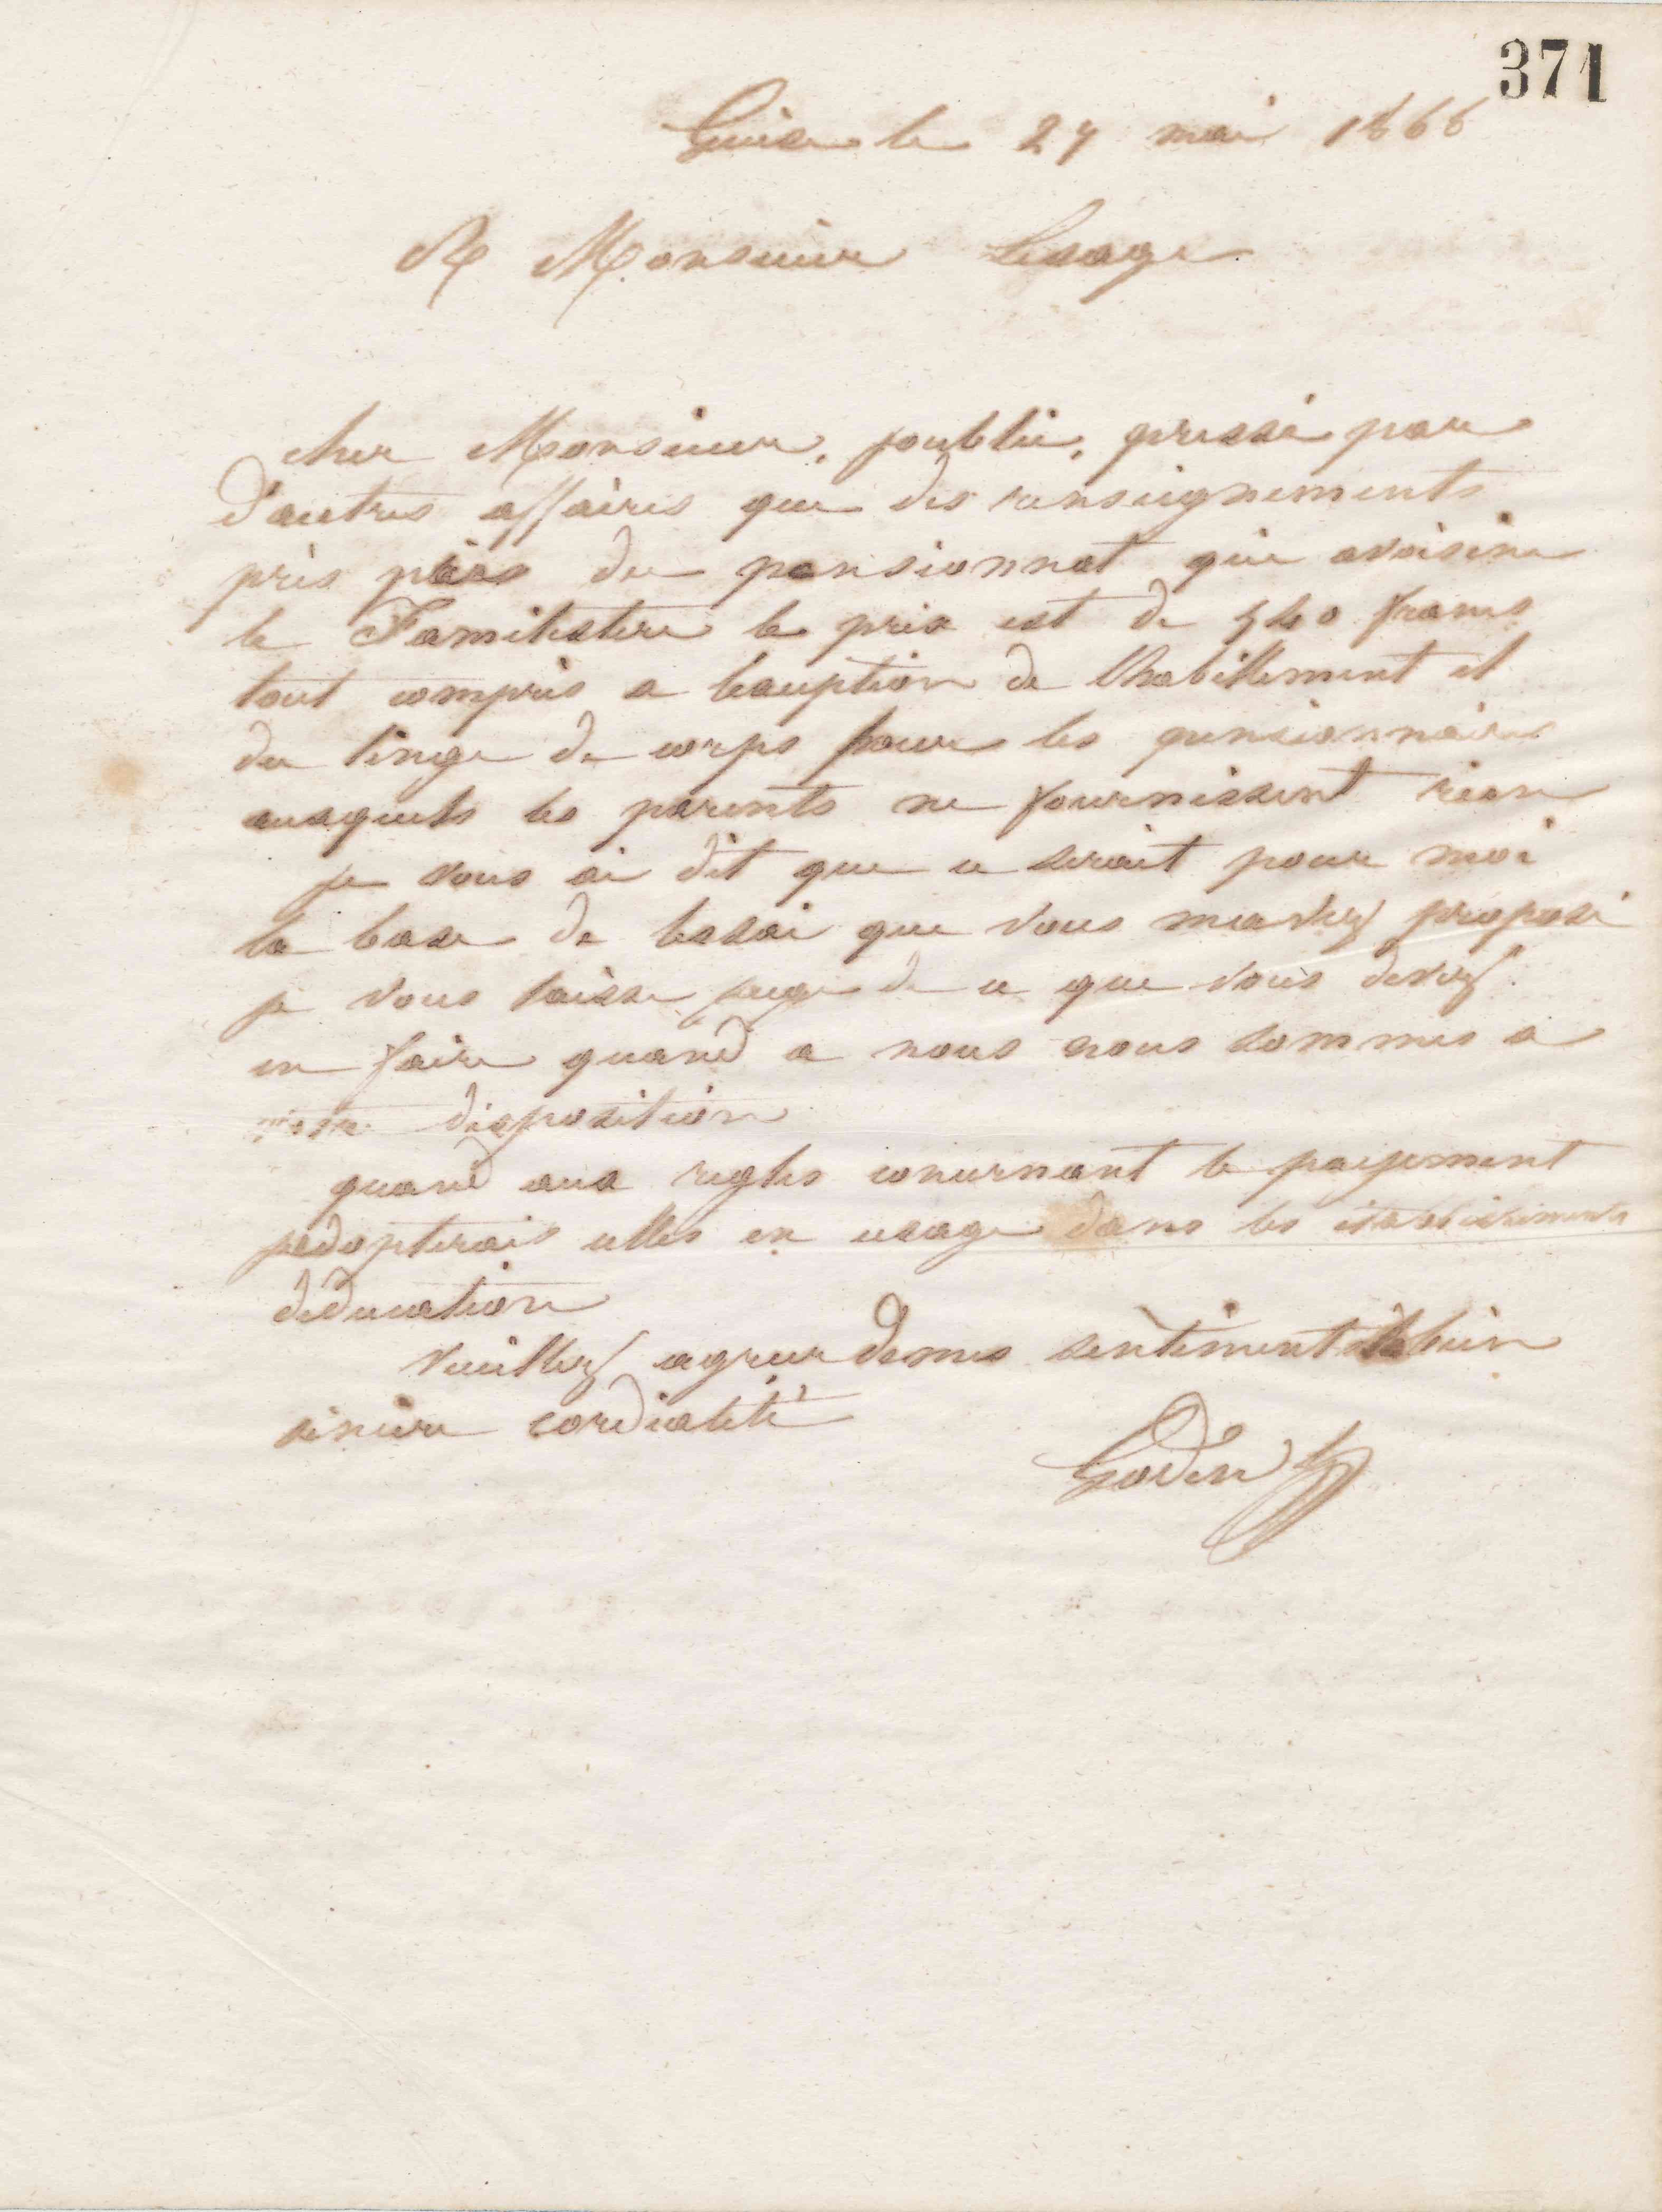 371
Guise le 27 mai 1866
A Monsieur Lesage
cher Monsieur, joublie, pressé par
d'autres affaires que des renseignements
pris près du pensionnat qui avoisine
le Familistere le prix est de 540 francs
tout compris a lexception de lhabillement et
du linge de corps pour les pensionnaires
auxquels les parents ne fournissent rien
je vous ai dit que ce serait pour moi
la base de lessai que vous mavez proposé
je vous laisse juge de ce que vous devez
en faire quand a nous nous sommes a
votre disposition
quand aux regles concernant le payement
jadopterais celles en usage dans les établissements
déducation
Veuillez agreer de mes sentiments bien
sincère cordialité
Godin